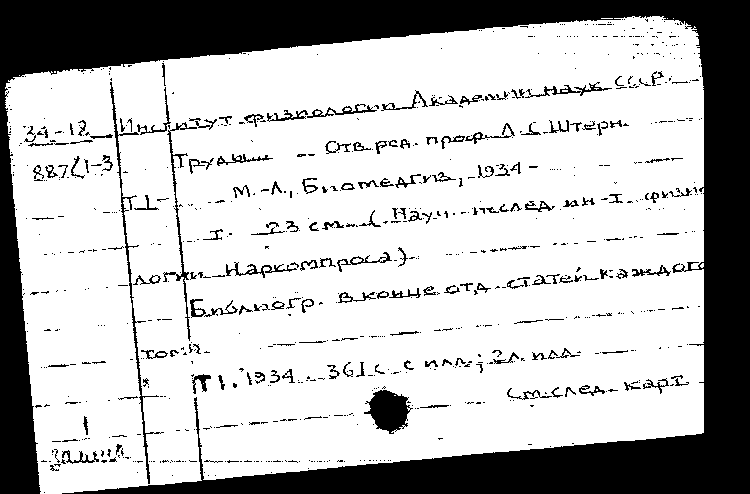 34-12 Институт физиологии Академии наук СССР.
887(1-3 Труды -- Отв. ред. проф Л.С Штерн.
Т I- М.-Л., Биомедгиз, 1934-
I. 23 см. (Науч.-исслед. ин-т физио
логии Наркомпроса).
Библиогр. в конце отд. статей каждого
тома.
Т I. 1934. 361 с. с илл.; 2л. илл.
См. след. карт
1